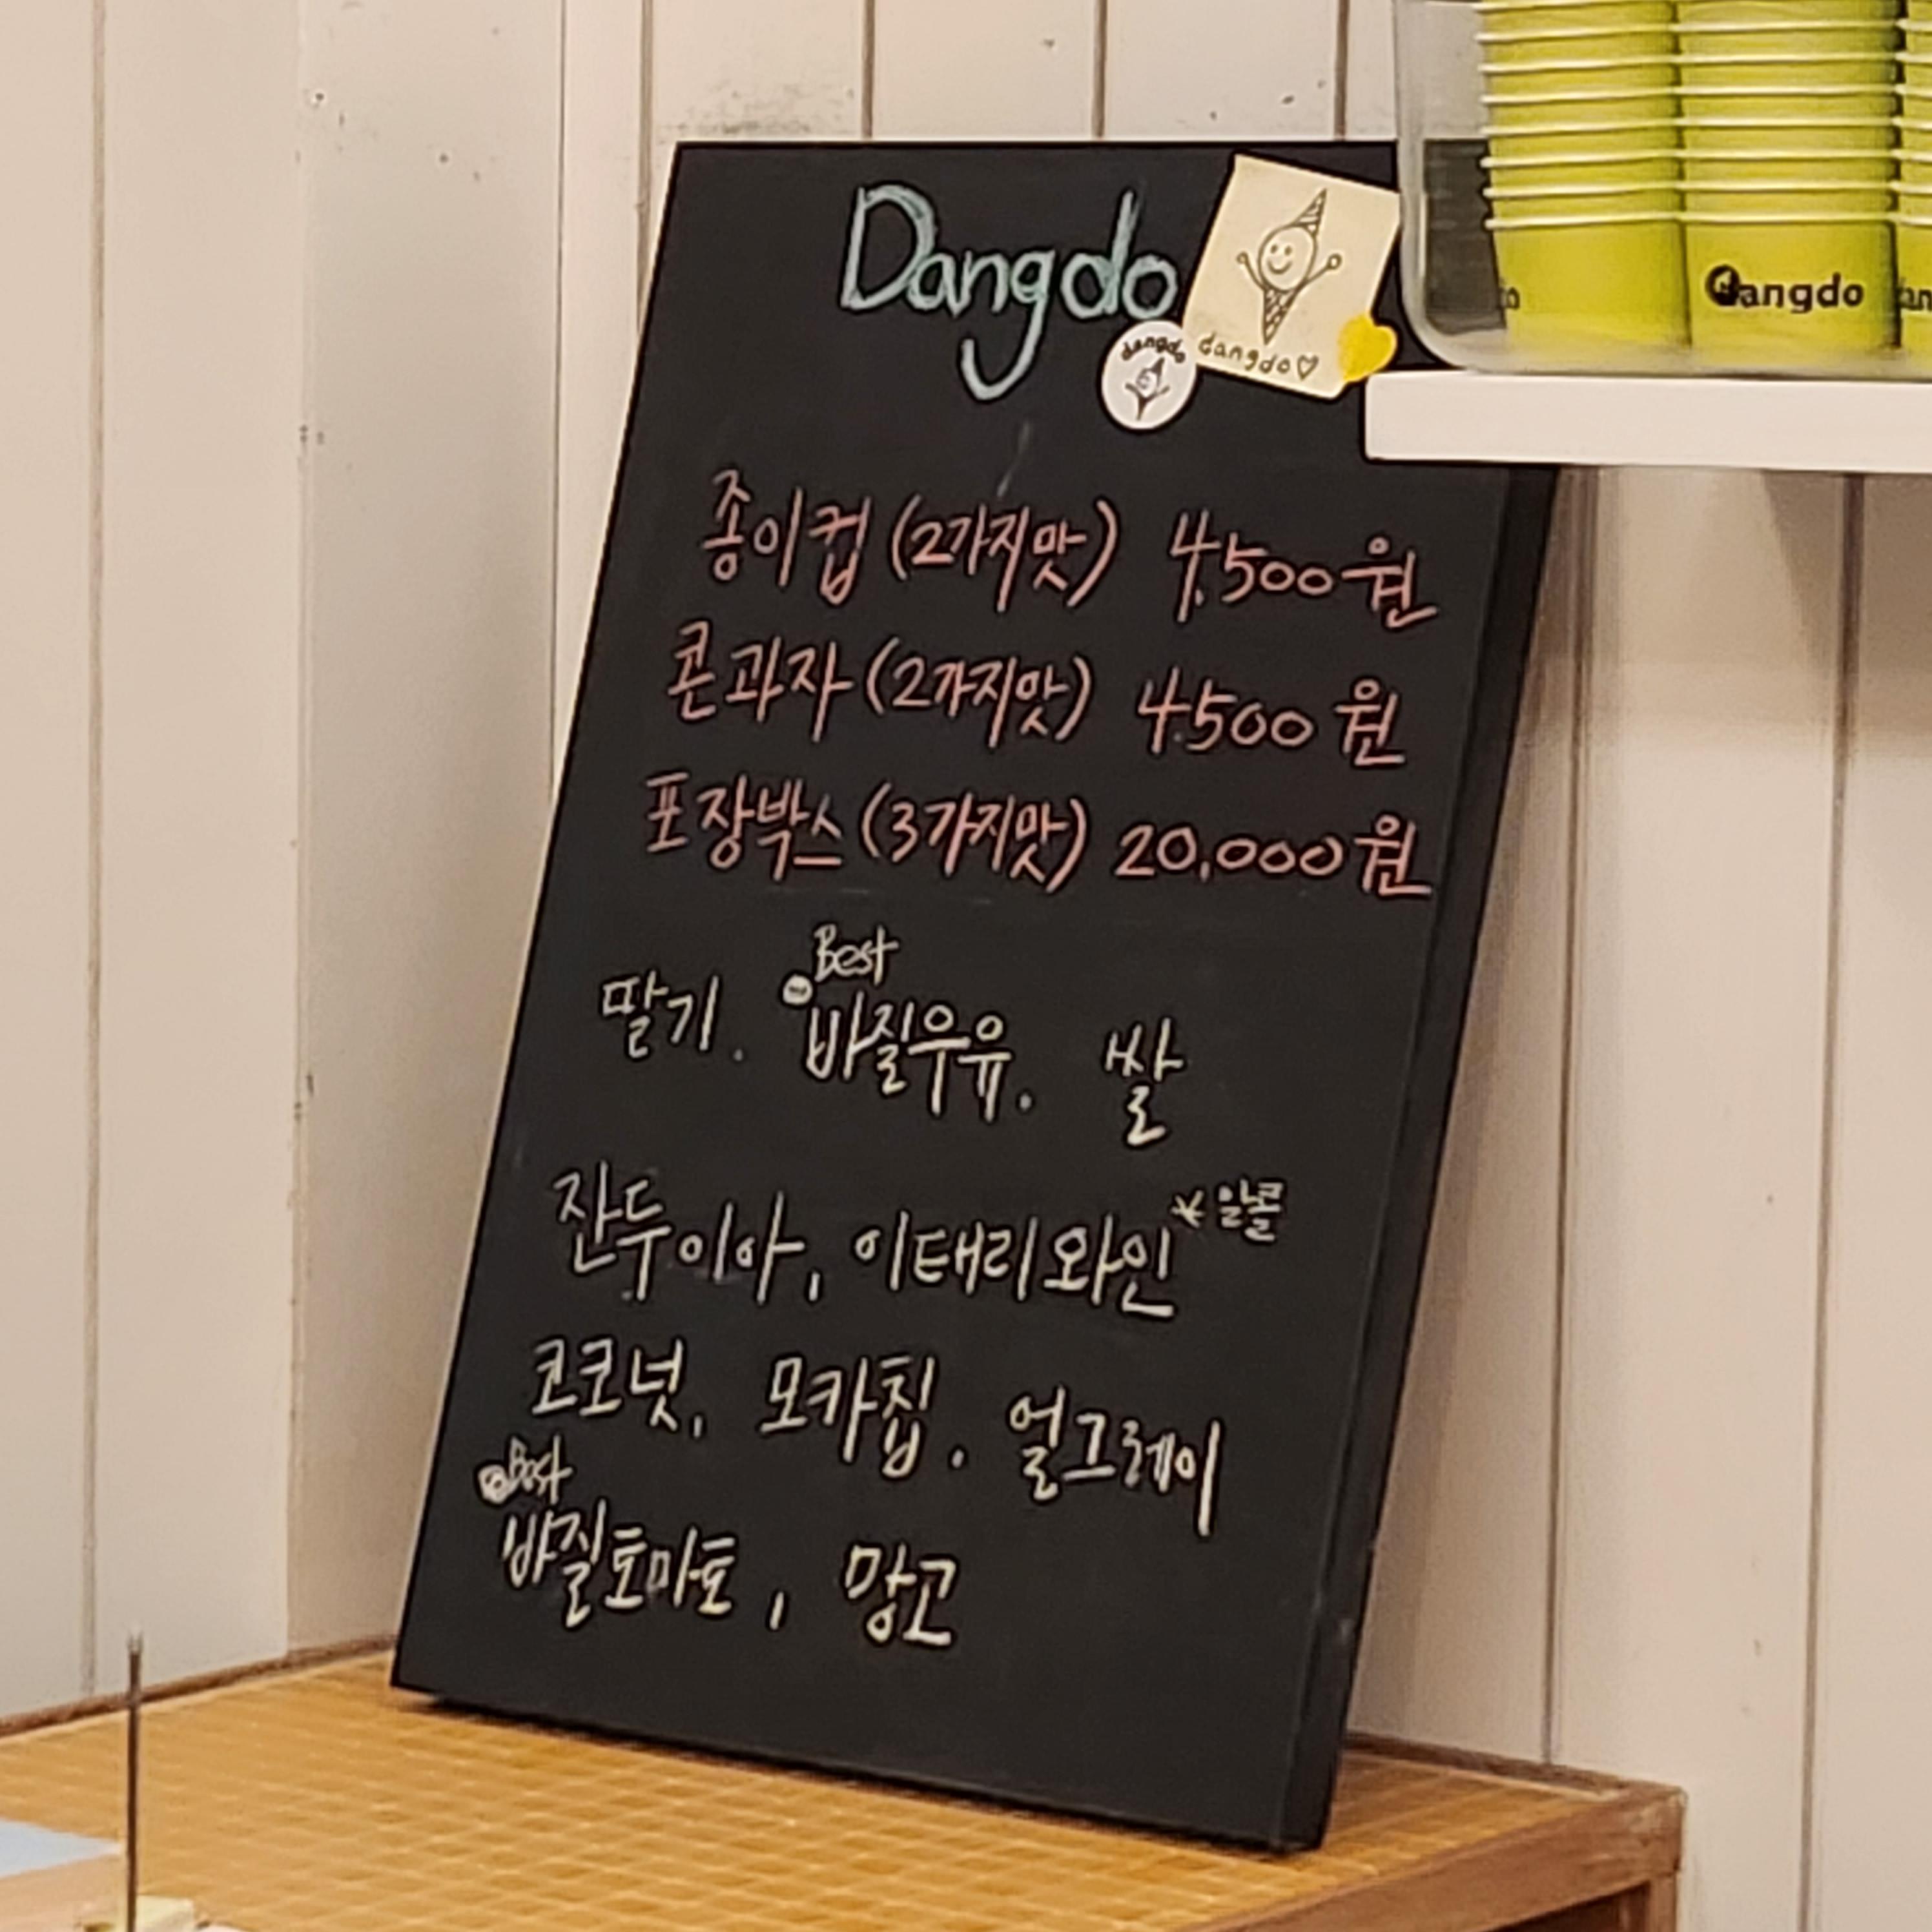 Dangdo
dangdo♡
dangdo
dangdo
종이컵 (2가지맛) 4,500원
콘과자 (2가지맛) 4,500원
포장박스 (3가지맛) 20,000원
Best
딸기. 바질우유. 쌀
잔두이아, 이태리와인 *알콜
코코넛, 모카칩. 얼그레이
Best
바질토마토, 망고